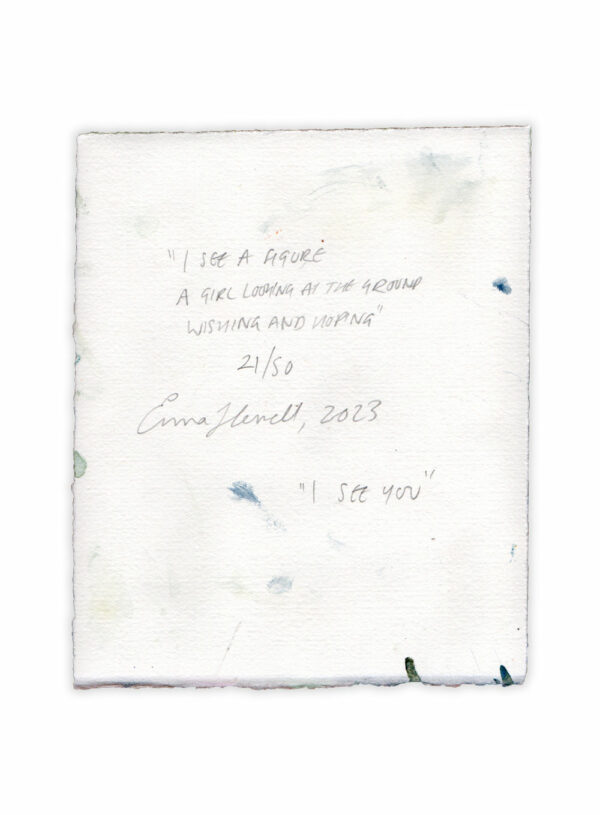 "I SEE A FIGURE
A GIRL LOOKING AT THE GROUND
WISHING AND HOPING"
21/50
Emma Hewett, 2023
"I SEE YOU"